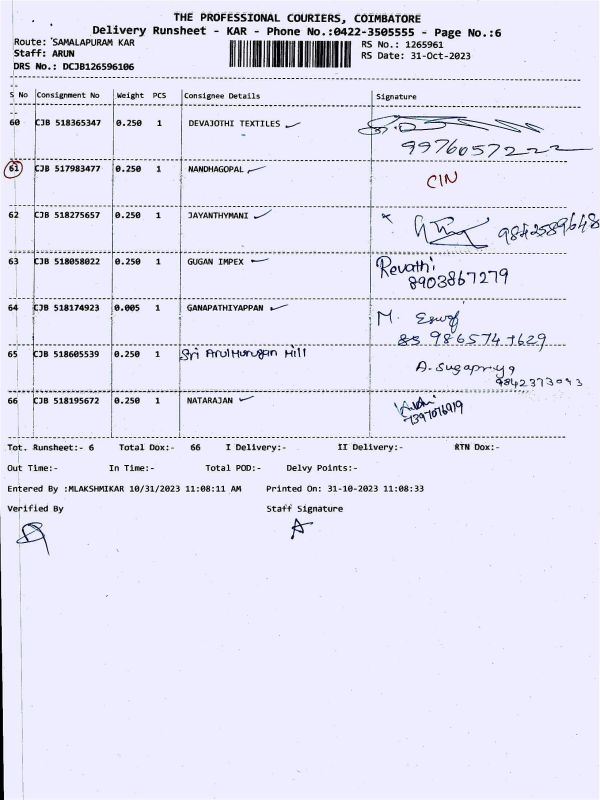 THE PROFESSIONAL COURIERS, COIMBATORE
Delivery Runsheet - KAR - Phone No.:0422-3505555 - Page No.:6
Route: SAMALAPURAM KAR
RS No.: 1265961
Staff: ARUN
RS Date: 31-Oct-2023
DRS No.: DCJB126596106
S No Consignment No Weight PCS Consignee Details Signature
60 CJB 518365347 0.250 1 DEVAJOTHI TEXTILES
9976057222
61 CJB 517983477 0.250 1 NANDHAGOPAL CIN
62 CJB 518275657 0.250 1 JAYANTHYMANI 9842589648
63 CJB 518058022 0.250 1 GUGAN IMPEX Revathi
8903867279
64 CJB 518174923 0.005 1 GANAPATHIYAPPAN M.
65 CJB 518605539 0.250 1 Sri Arulmurugan Mill
A. Sugapriya
66 CJB 518195672 0.250 1 NATARAJAN
Tot. Runsheet:- 6 Total Dox:- 66 I Delivery:- II Delivery:- RTN Dox:-
Out Time:- In Time:- Total POD:- Delvy Points:-
Entered By :MLAKSHMIKAR 10/31/2023 11:08:11 AM Printed On: 31-10-2023 11:08:33
Verified By Staff Signature